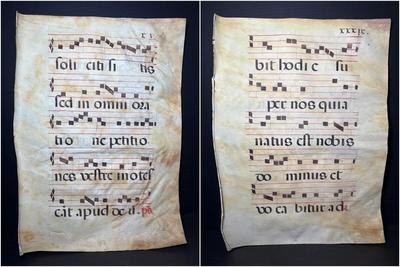 soli citi si tis
sed in omni ora
tio ne petitio
nes vestre inotes
cāt apud deū.
bit hodi e su
per nos quia
natus est nobis
do minus et
vo ca bitur ad